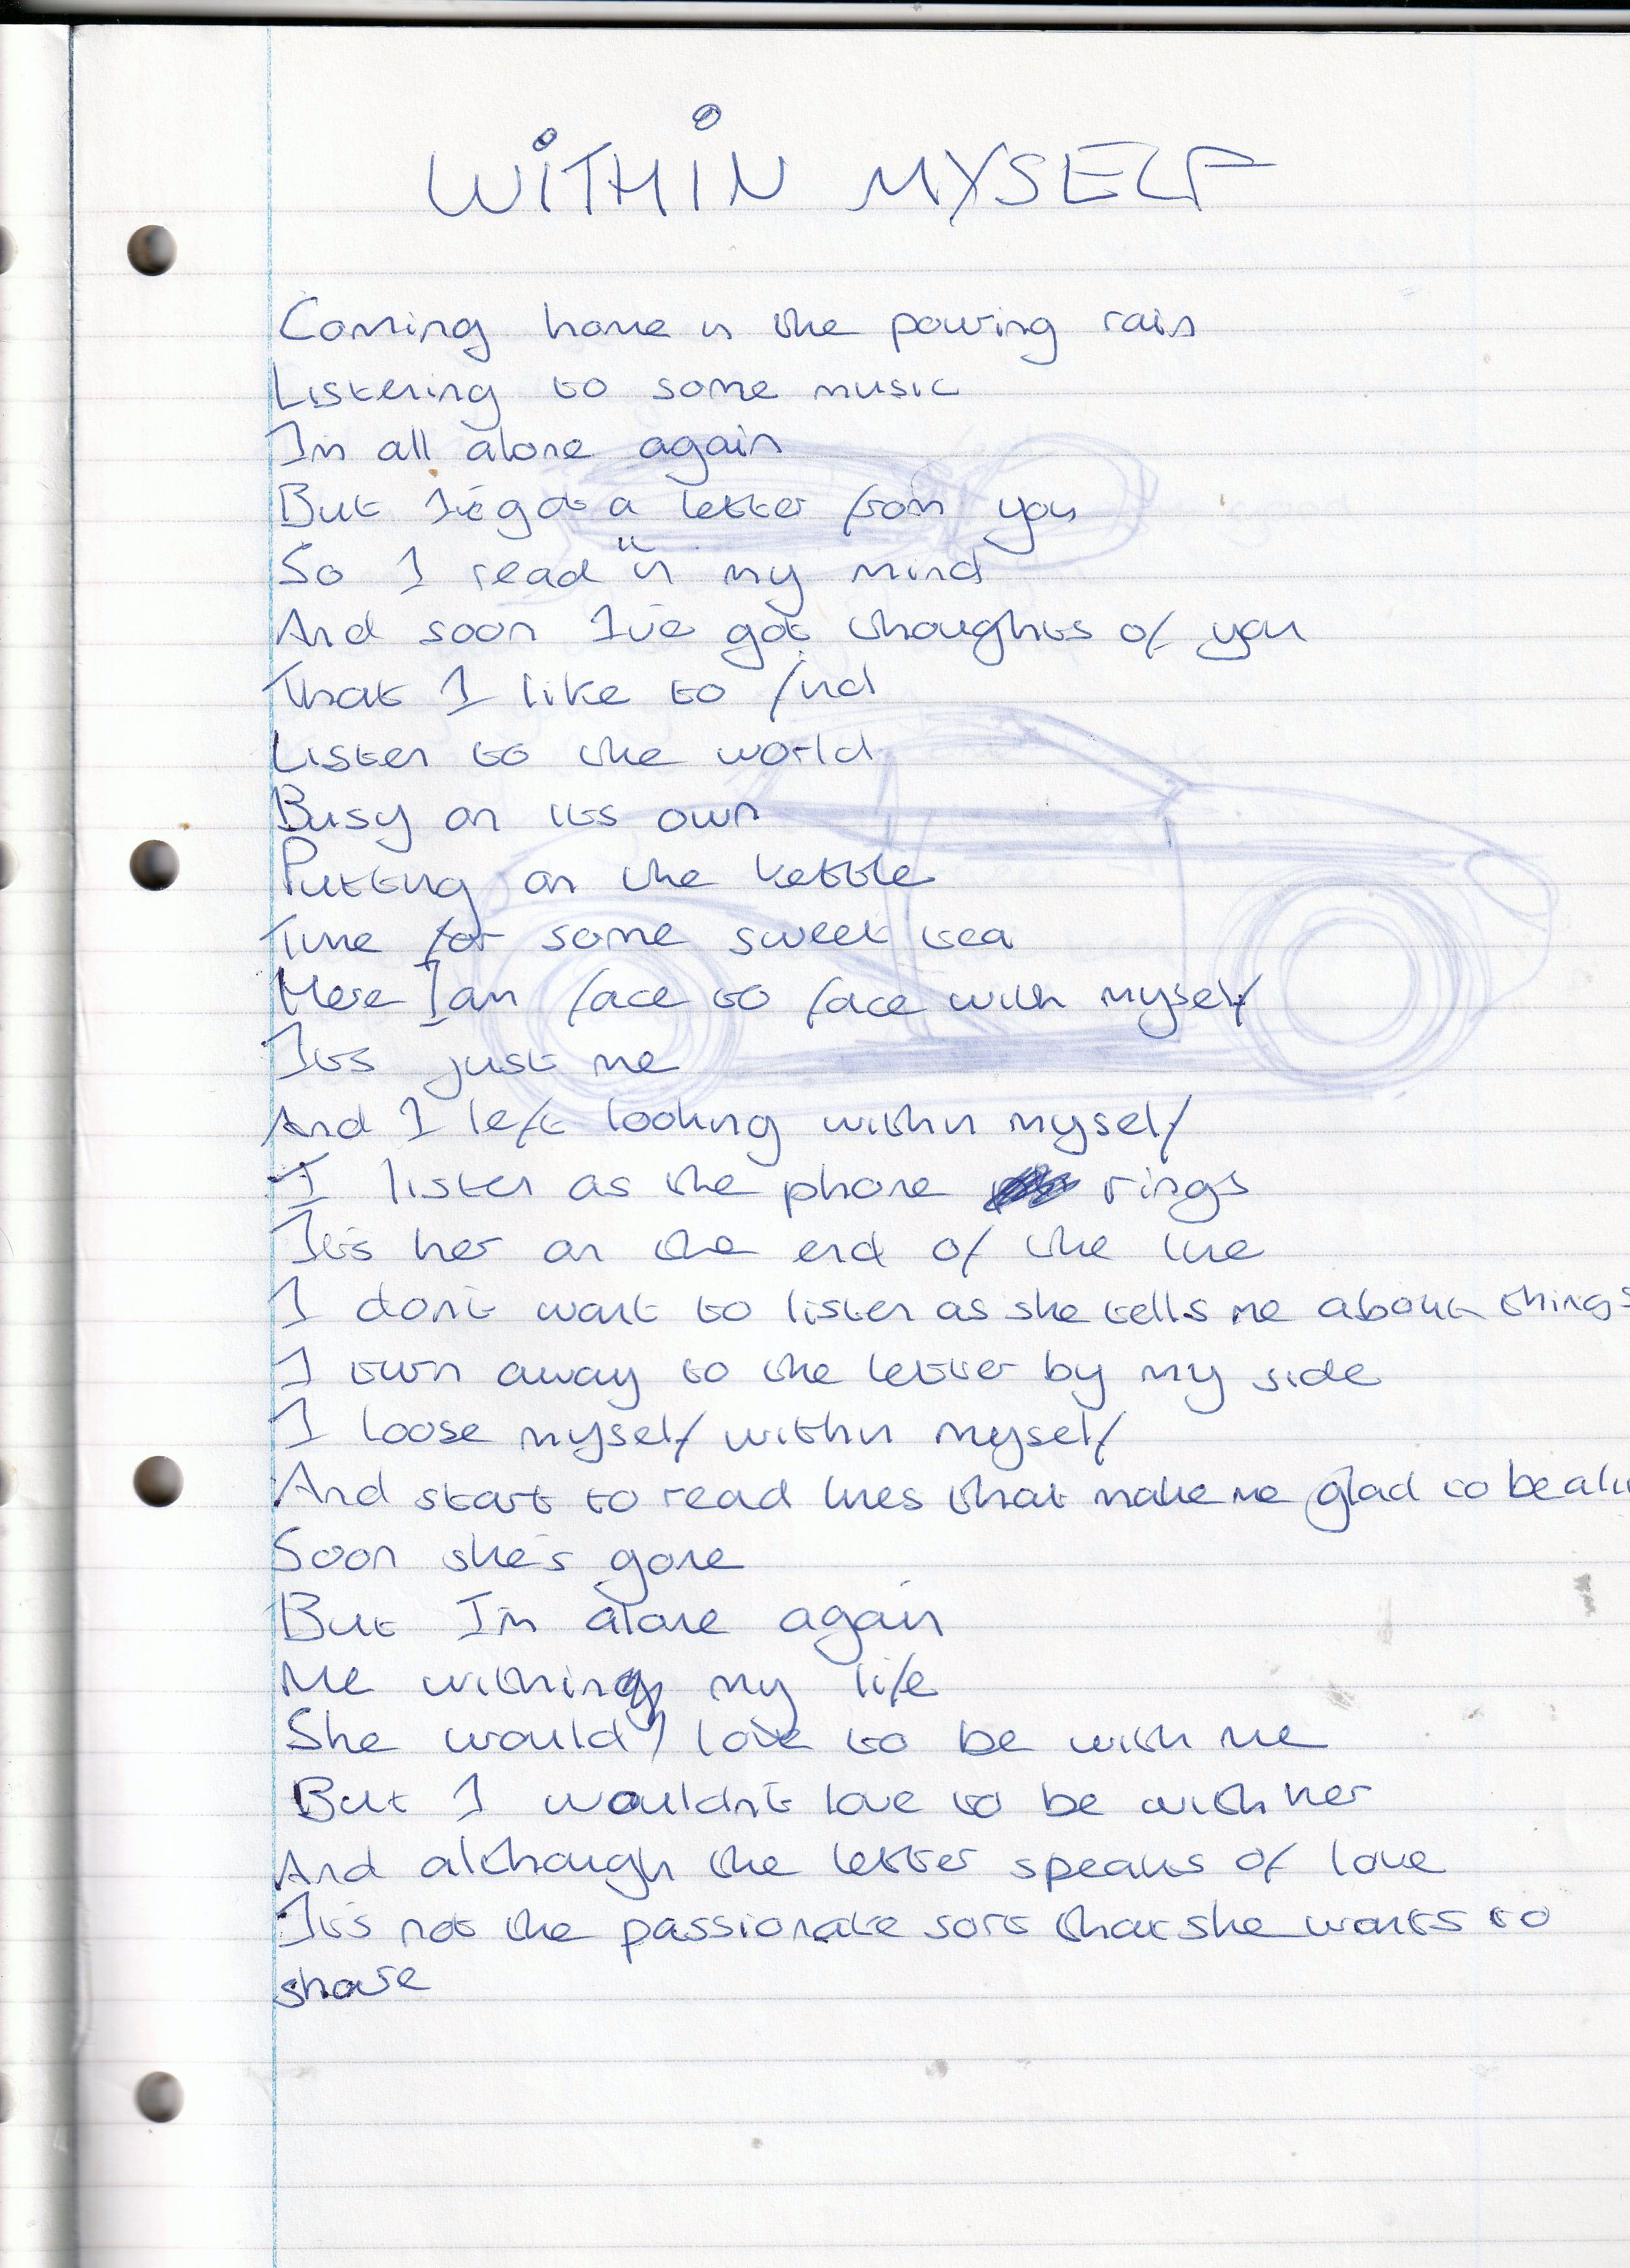 WITHIN MYSELF
Coming home in the pouring rain
Listening to some music
I'm all alone again
But I've got a letter from you
So I read in my mind
And soon I've got thoughts of you
That I like to find
Listen to the world
Busy on its own
Putting on the kettle
Time for some sweet tea
Here I am face to face with myself
Its just me
And I left looking within myself
I listen as the phone rings
It's her on the end of the line
I don't want to listen as she tells me about things
I turn away to the letter by my side
I loose myself within myself
And start to read lines that make me glad to be aliv
Soon she's gone
But I'm alone again
Me within my life
She would love to be with me
But I wouldn't love to be with her
And although the letter speaks of love
It's not the passionate sort that she wants to
share